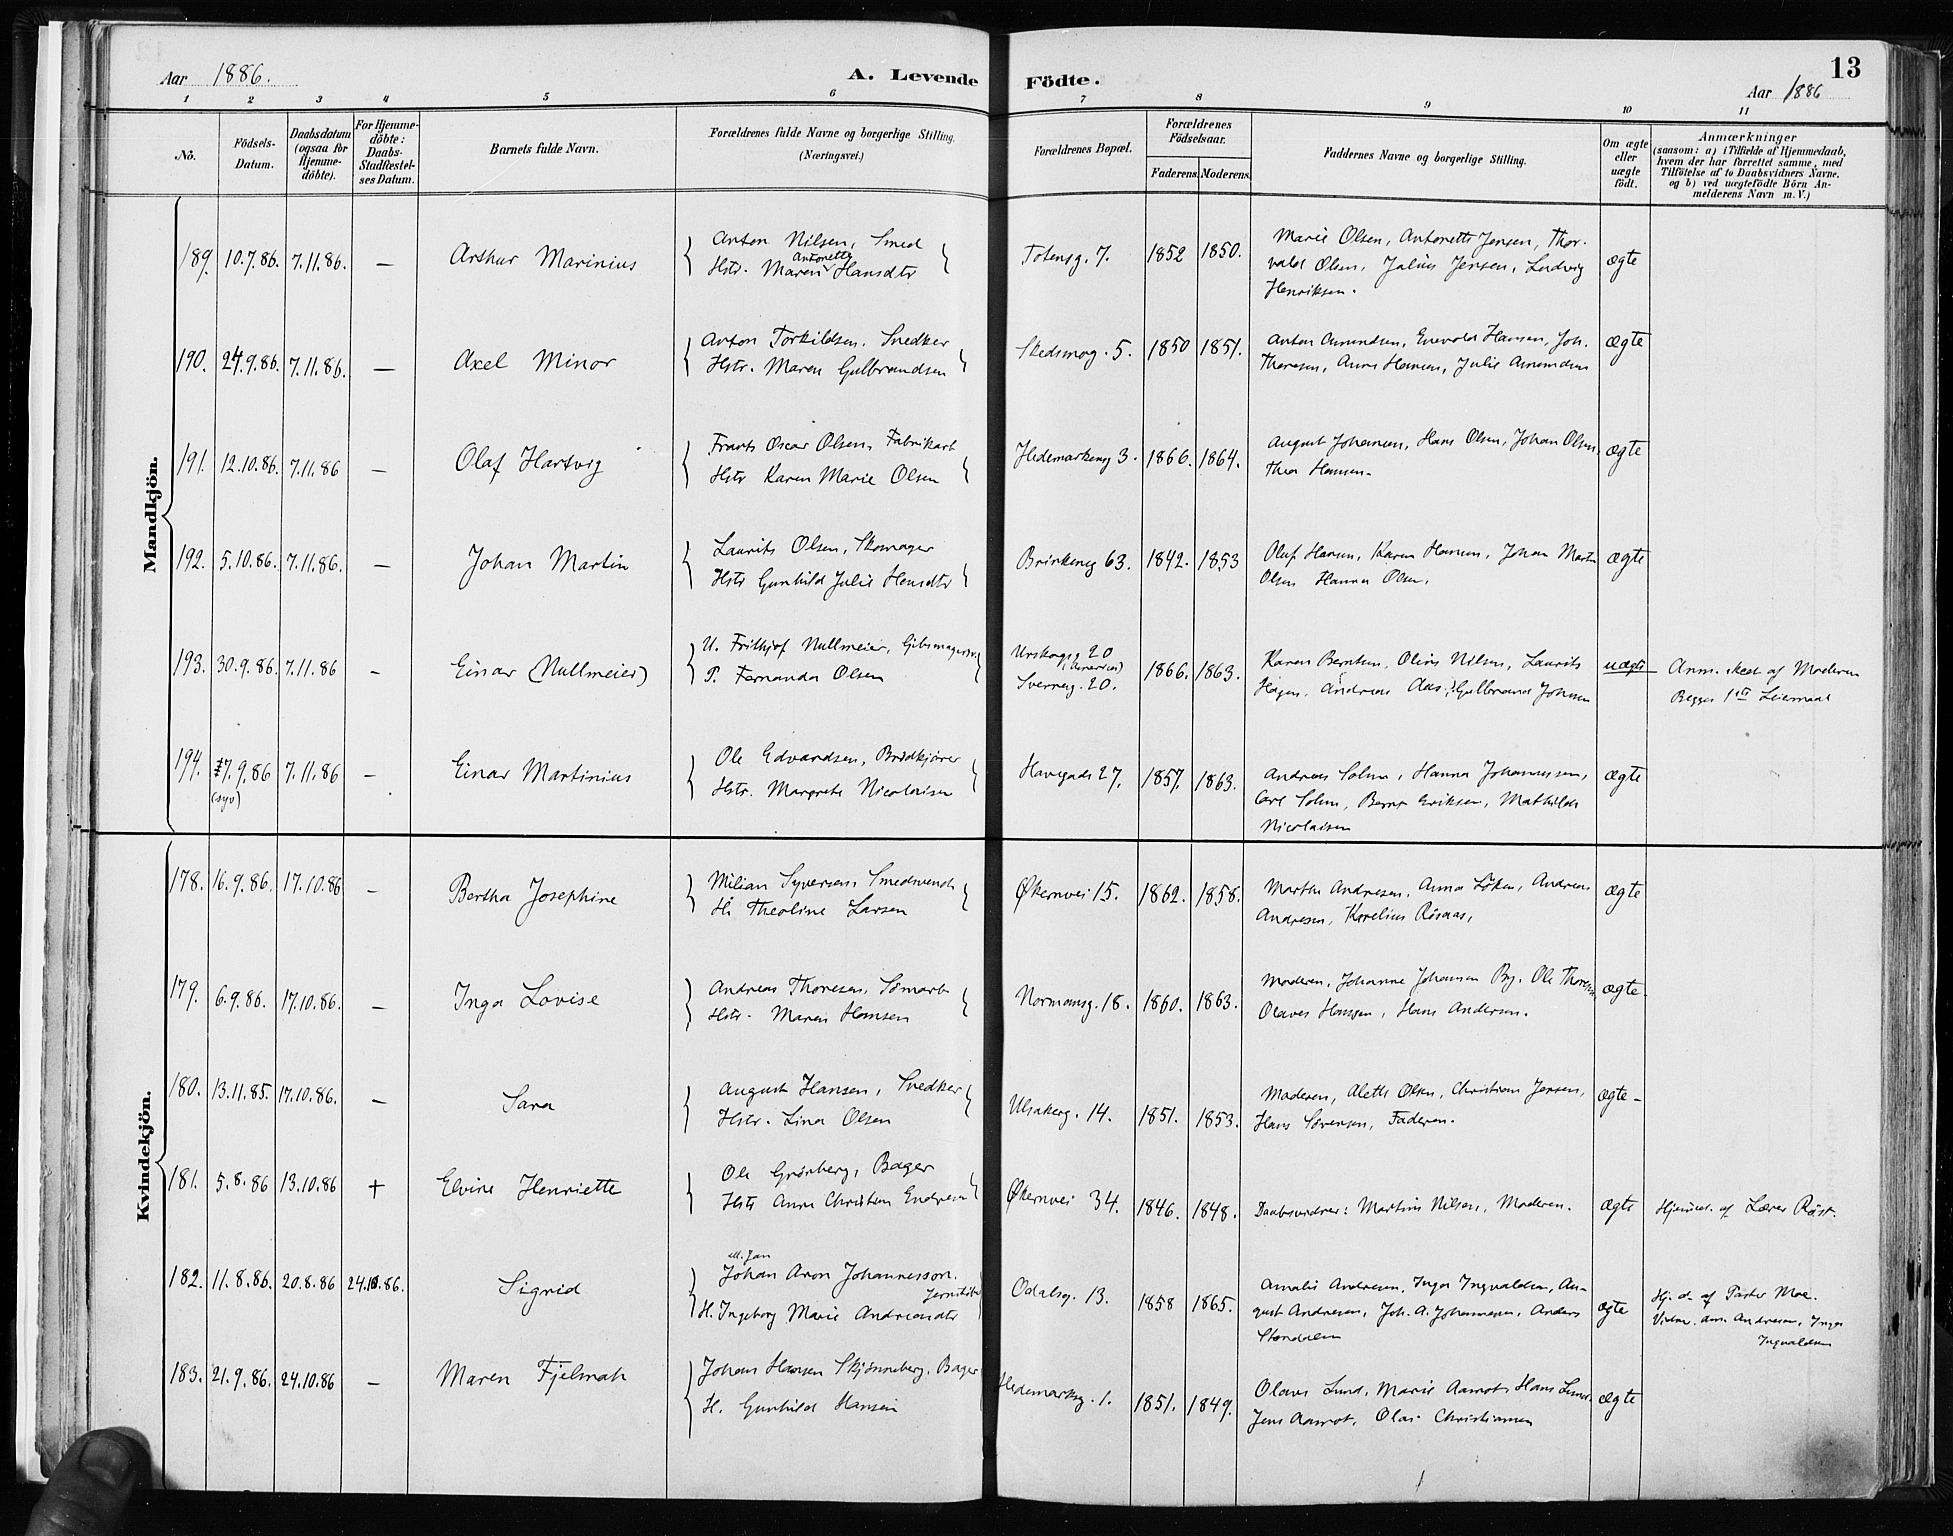 Aar 1886.
A. Levende Födte.
13
Aar 1886
1 2 3 4 5 6 7 8 9 10 11
No.
Födsels-Datum.
Daabsdatum (ogsaa for Hjemme-döbte).
For Hjemme-döbte: Daabs-Stadfæstel-ses Datum.
Barnets fulde Navn.
Forældrenes fulde Navne og borgerlige Stilling.
(Næringsvei.)
Forældrenes Bopæl.
Forældrenes Födselsaar.
Faderens. Moderens.
Faddernes Navne og borgerlige Stilling.
Om ægte eller uægte födt.
Anmærkninger
(saasom: a) i Tilfælde af Hjemmedaab,
hvem der har forrettet samme, med
Tilföielse af to Daabsvidners Navne.
og b) ved uægtefödte Börn An-
melderens Navn m. V.)
Mandkjön.
189. 10.7.86. 7.11.86. — Arthur Marinius
Anton Nilsen, Smed
Hstr. Maren Antonette Hansdtr
Totensg. 7. 1852 1850.
Marie Olsen, Antonette Jensen, Thor-
vald Olsen, Julius Jensen, Ludvig
Henriksen.
ægte
190. 24.9.86. 7.11.86. — Axel Minor
Anton Torkildsen, Snedker
Hstr. Maren Gulbrandsen
Skedsmog. 5. 1850 1851.
Anton Amundsen, Enevald Hansen, Joh.
Thoresen, Anna Hansen, Julie Amundsen
ægte
191. 12.10.86. 7.11.86 — Olaf Hartvig
Frants Oscar Olsen, Fabrikarb
Hstr Karen Marie Olsen
Hedemarkeng 3. 1866. 1864.
August Johansen, Hans Olsen, Johan Olsen,
Thea Hansen.
ægte
192. 5.10.86. 7.11.86. — Johan Martin
Laurits Olsen, Skomager
Hstr Gunhild Julie Hansdtr
Brinkeng 63. 1842. 1853
Oluf Hansen, Karen Hansen, Johan Martin
Olsen Hanna Olsen.
ægte
193. 30.9.86. 7.11.86 - Einar (Nullmeier)
U. Frithjof Nullmeier, Gibsmagersv.
P. Fernanda Olsen
Urskogg 20
Sverreg. 20.
1866. 1863.
Karen Berntsen, Oline Nilsen, Laurits
Hagen, Andreas Aas, Gulbrand Johnsen
uægte
Anm. skeet af Moderen
Begges 1ste Leiermaal
194. 7.9.86 (syv) 7.11.86 — Einar Martinius
Ole Edvardsen, Brødkjører
Hstr. Margrete Nicolaisen
Havegade 27. 1857. 1863.
Andreas Solum, Hanna Johannessen,
Carl Solum, Bernt Eriksen, Mathilde
Nicolaisen
ægte
Kvindekjön.
178. 16.9.86. 17.10.86 — Bertha Josephine
Milian Syversen, Smedsvend
H. Theoline Larsen
Økernvei 15. 1862. 1858.
Marthe Andresen, Anna Löken, Andreas
Andresen, Karelius Rösaas,
ægte
179. 6.9.86. 17.10.86. — Inga Lovise
Andreas Thoresen, Tomarb
Hstr. Maren Hansen
Normansg. 18. 1860. 1863.
Moderen, Johanne Johansen Byg. Ole Thoresen
Olaves Hansen, Hans Andersen.
ægte.
180. 13.11.85. 17.10.86. — Sara
August Hansen, Snedker
Hstr. Lina Olsen
Ulsakerg. 14. 1851. 1853.
Moderen, Alette Olsen, Christian Jensen,
Hans Sørensen, Faderen.
ægte -
181. 5.8.86 13.10.86 + Elvine Henriette
Ole Grønberg, Bager
Hstr Anne Christine Endresen
Økernvei 34. 1846. 1848.
Daabsvidner: Martine Nilsen, Moderen.
ægte
Hjemmed. af Lærer Röst.
182. 11.8.86. 20.8.86 24.10.86. Sigrid
ell. Jan
Johan Aron Johannesson.
H. Ingeborg Marie Andreasdtr
Odalsg. 13. 1858 1865.
Amalie Andresen, Inga Ingvaldsen, Au-
gust Andresen, Joh. A. Johannesen, Anders
ægte
Hj. d. af Pastor Moe.
Vidner. Am. Andresen, Inga
Ingvaldsen
183. 21.9.86. 24.10.86 — Maren Fjelmah
Johan Hansen Skjønneberg, Bager
H. Gunhild Hansen
Hedemarksg. 1. 1851. 1849.
Olaves Lund, Marie Aamot, Hans Lund.
Jens Aamot, Olai Christiansen
ægte